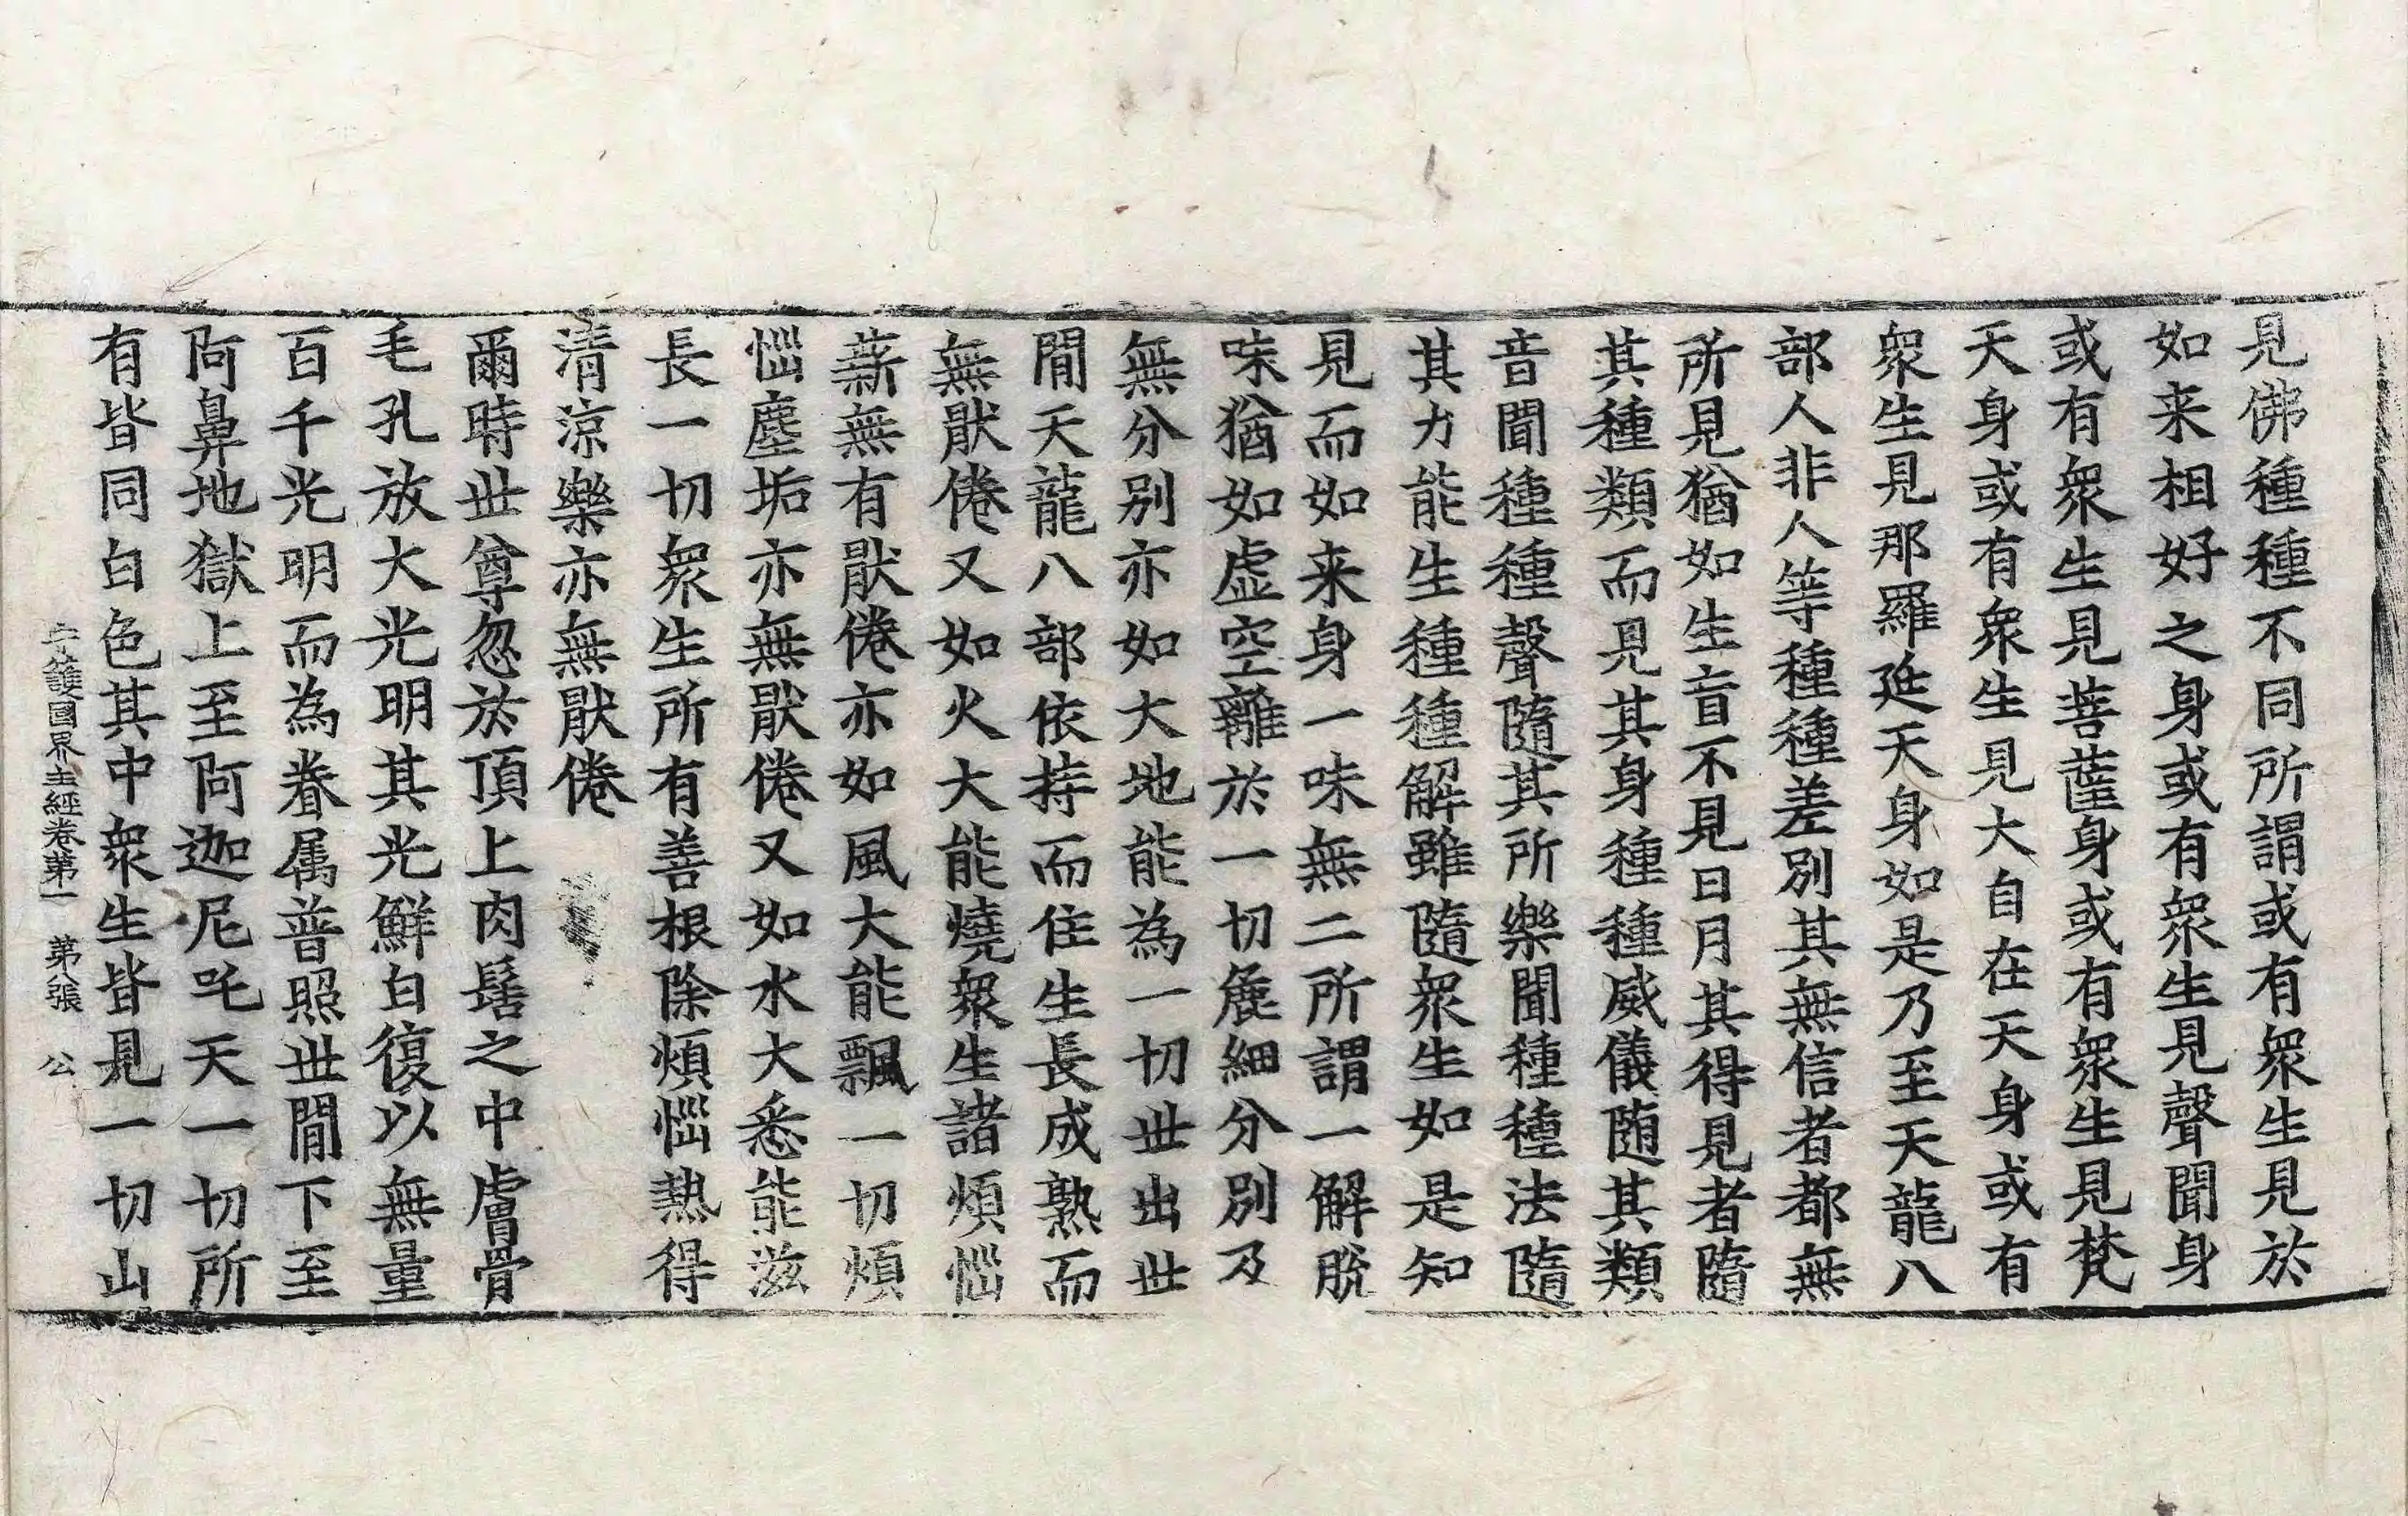 見佛種種不同所謂或有衆生見於
如来相好之身或有衆生見聲聞身
或有衆生見菩薩身或有衆生見梵
天身或有衆生見大自在天身或有
衆生見那羅延天身如是乃至天龍八
部人非人等種種差別其無信者都無
所見猶如生盲不見日月其得見者隨
其種類而見其身種種威儀随其類
音聞種種聲隨其所樂聞種種法隨
其力能生種種解雖隨衆生如是知
見而如来身一味無二所謂一解脫
味猶如虛空離於一切麁細分別及
無分别亦如大地能為一切世出世
間天龍八部依持而住生長成熟而
無猒倦又如火大能燒衆生諸煩惱
薪無有猒倦亦如風大能飄一切煩
惱塵垢亦無猒倦又如水大悉能滋
長一切衆生所有善根除煩惱熱得
清涼樂亦無猒倦
爾時世尊忽於頂上肉髻之中膚骨
毛孔放大光明其光鮮白復以無量
百千光明而為眷属普照世間下至
阿鼻地獄上至阿迦尼吒天一切所
有皆同白色其中衆生皆見一切山
守護國界主經卷第一 第八張 公